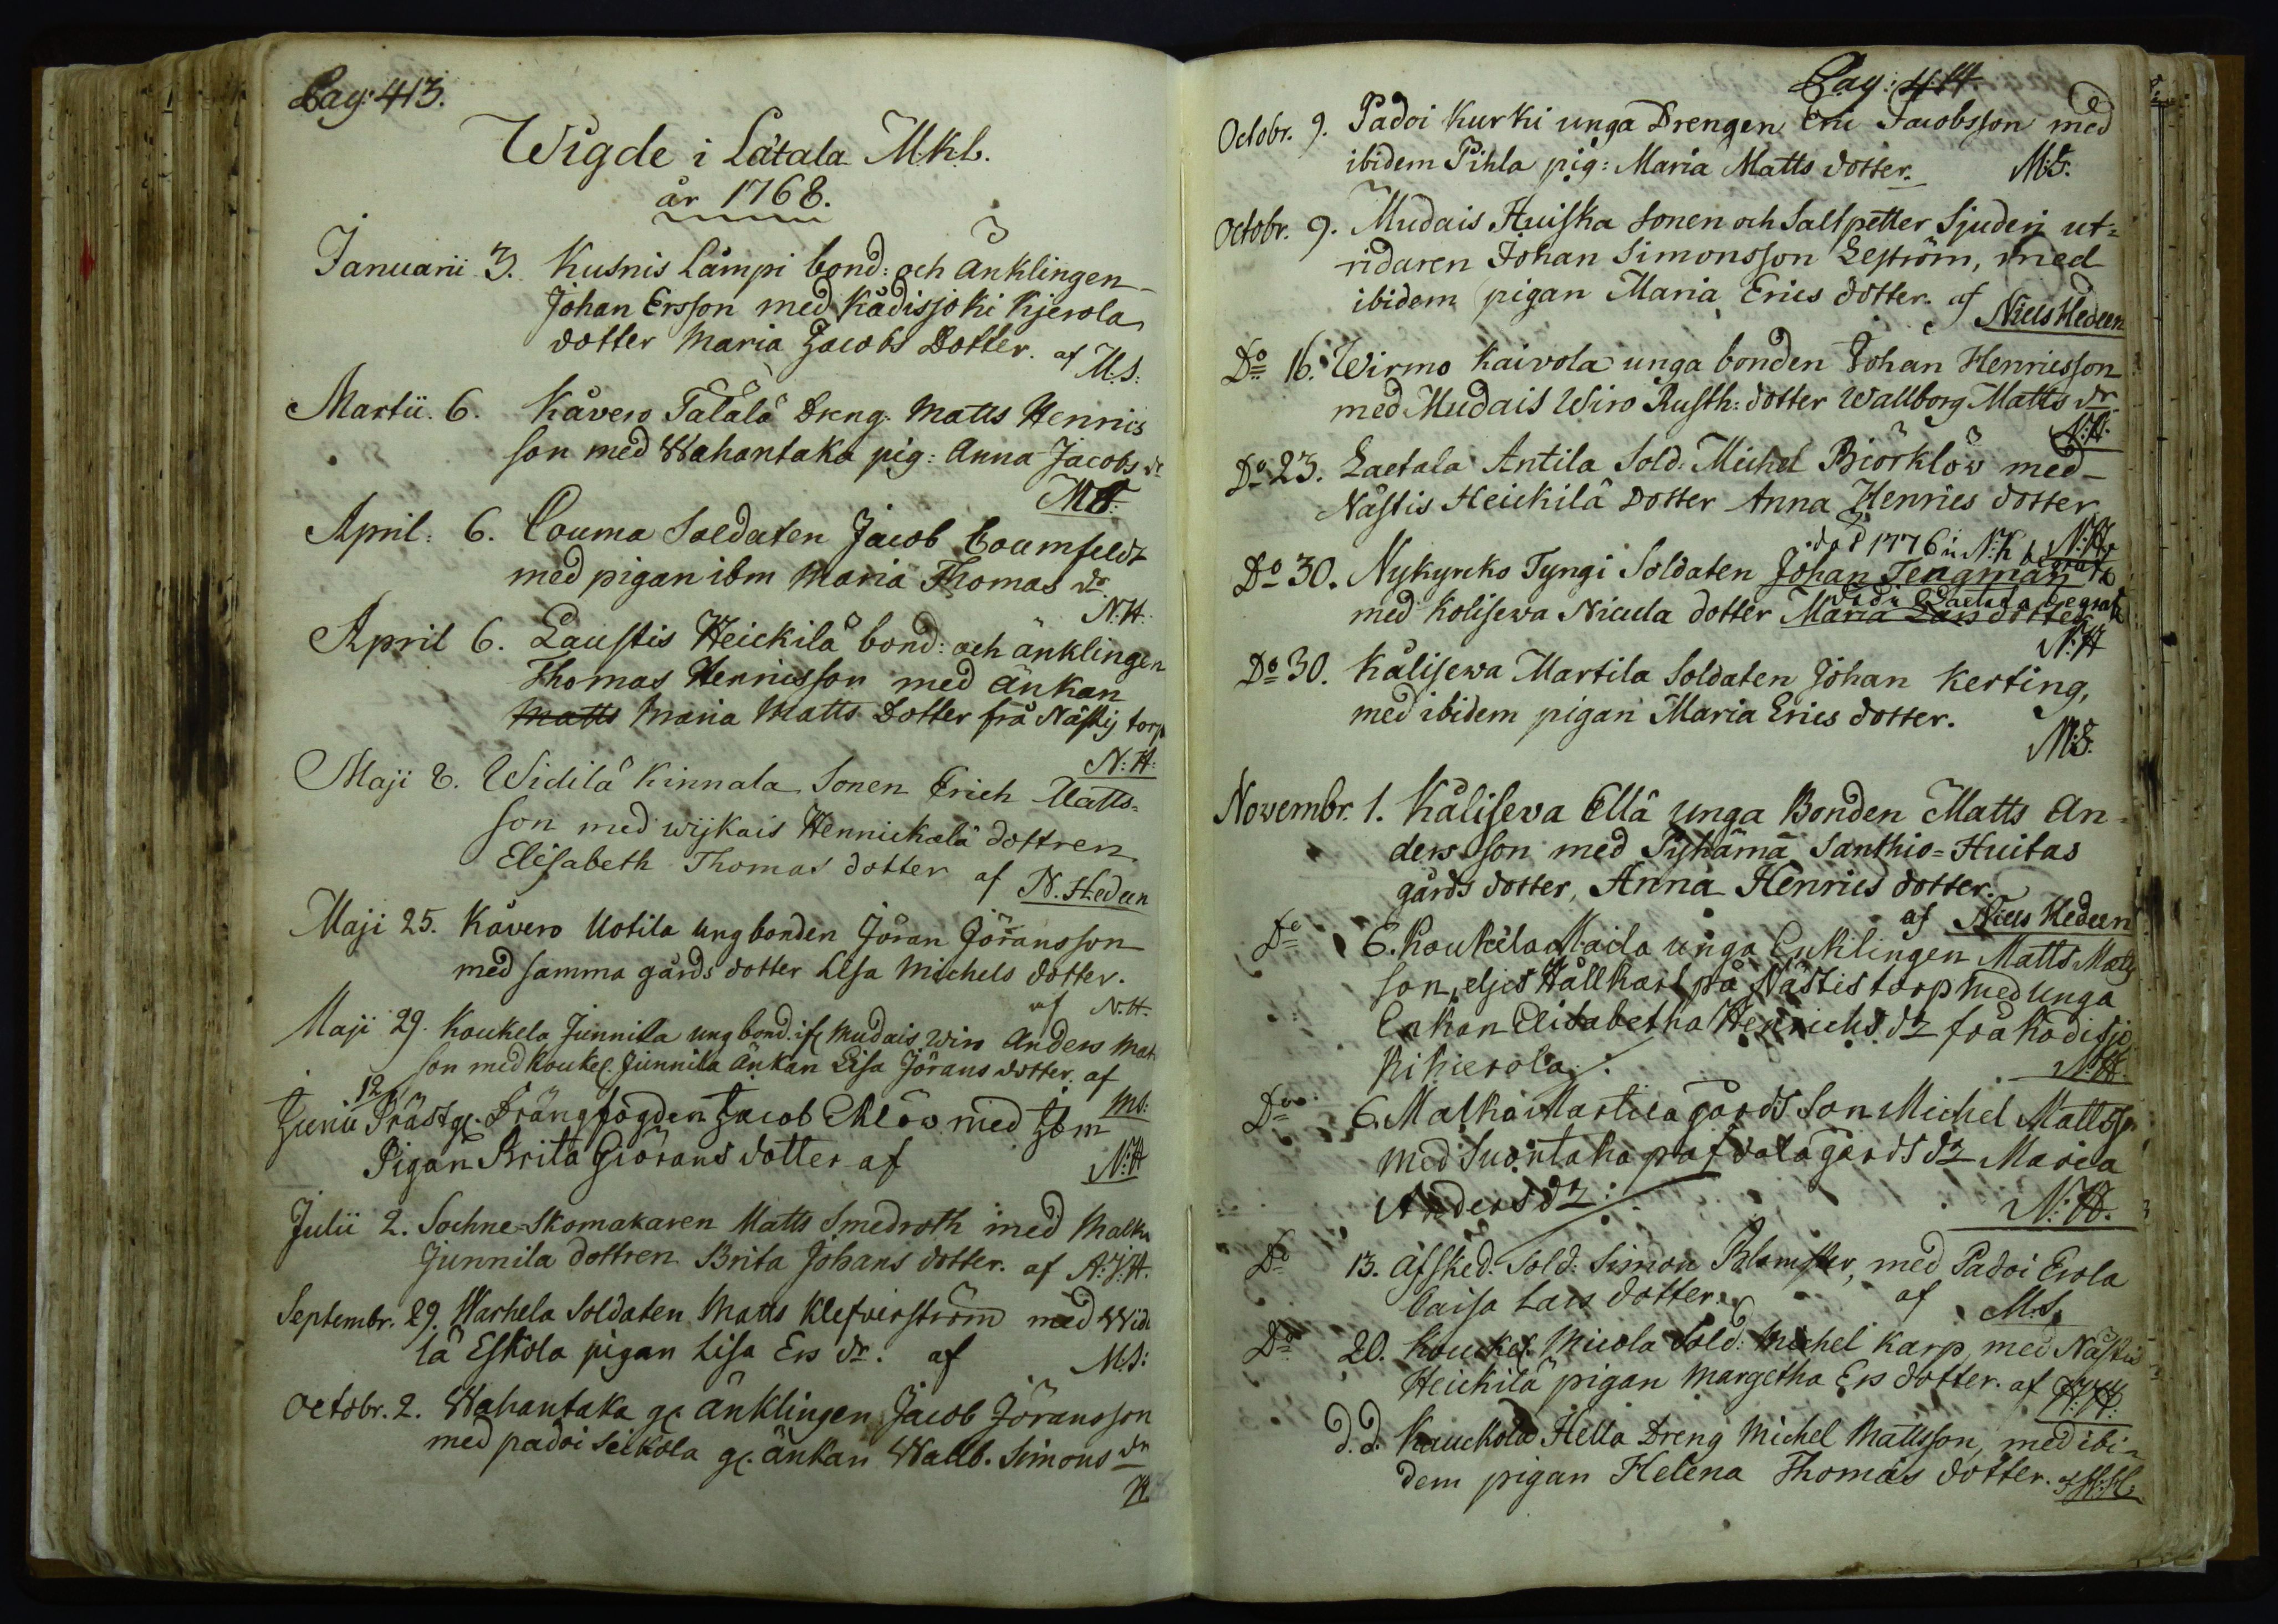 Pag: 413.
Wigde i Låtala M.k.b.
år 1768.
Januarii 3. Kusnis Lámpi bond: och änklingen
Johan Ersson med Kådisjoki Kjerola
dotter Maria Jacobs Dotter. af M.S:
Martii. 6. Kåvero Talala Dreng. Matts Henrics
son med Wahantaka pig: Anna Jacobs dr
April: 6. Couma Soldaten Jacob
med pigan ibm Maria Thomas dr
N.H.
April 6. Laustis Heickilä bond: och änklingen
Thomas Henricsson med Änkan
Matts Maria Matts Dotter frå Nästij torp
N:H:
Maji 8. Widilä Kinnala Sonen Erich Matts-
son med wijkais Hennickala dottren
Elisabeth Thomas dotter af N. Hedeen
Maji 25. Kåvero Uotila ung bonden Jöran Jöransson
med samma gårds dotter Lisa Michels dotter.
af N.H.
Maji 29. Koukela Junnila ung bond. if Mudais Wiro Anders Mat
son med Koukel. Junnila Änkan Lisa Jörans dotter. af
MS:
Junii 12 Prästg. Drängfogden Jacob Eklöv med Ibm
Pigan Brita Giörans dotter af N:H
Julii 2. Sochne-Skomakaren Matts Smedroth med Malko
Junnila dottren Brita Johans dotter. af A:J:H.
Septembr. 29. Warhela Soldaten Matts Klefverström med Widi
lä Eskola pigan Lisa Ers dr. af M.S:
Octobr. 2. Wahantaka g. Änklingen Jacob Jöransson
med padoi Seikola g. änkan Wallb. Simons dr
Pag: 414.
Octobr. 9. Padoi Kurki unga Drengen Eric Jacobsson med
ibidem Pihla pig: Maria Matts dotter. M:S.
Octobr. 9. Mudais Huiska Sonen och Saltpetter Sjuderi ut-
ridaren Johan Simonsson Leström, med
ibidem pigan Maria Erics dotter. af Niels Hedeen
Do 16. Wirmo Kaivola unga bonden Johan Henricsson
med Mudais Wiro Rusth: dotter Wallborg Matts dr.
N:H.
Do 23. Laetala Antila Sold. Michel Biörklöv med
Nästis Heickilä Dotter Anna Henrics dotter
N:H.
död 1776 i N:K begrafv
Do 30. Nykyrcko Tyngi Soldaten Johan Tengman
med Kolisewa Nicula dotter Maria Lars dotter
N:H
Do 30. Kålisewa Martila Soldaten Johan Kerting,
med ibidem pigan Maria Erics dotter.
M:S.
Novembr. 1. Kåliseva Ellä unga Bonden Matts An-
dersson med Pyhämä Santhio-Huitas
gårds dotter, Anna Henrics dotter.
af Niels Hedeen
Do 6. Koukela Maila unga Enklingen Matts Matts
son, eljes Hållkarl på Nästis torp med unga
Enkan Elisabetha Henrichs dr frå Kodisjo
ki Kierola:
N:H.
Do 6. Malko Martila gårds Son Michel Mattss
med Suontaka gårds dr Maria
Anders dr:
N:H.
Do 13. afsked. Sold: Simon Blomster, med Padoi Erola
Caisa Lars dotter. af M.S.
Do 20. Koukel. Micola Sold: Michel Karp, med Nästis
Heickilä pigan Margetha Ers dotter. af
d.d. Kauckola Hella Dreng Michel Mattsson, med ibi-
dem pigan Helena Thomas dotter.